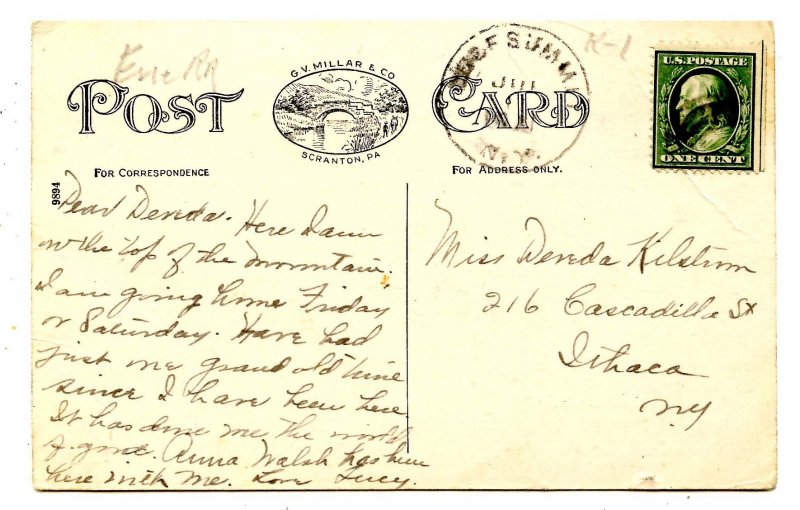 Erie RR
K-1
G.V. MILLAR & CO
SCRANTON, PA
POST CARD
U.S. POSTAGE
ONE CENT
FOR CORRESPONDENCE
FOR ADDRESS ONLY.
9894
SUMMI
JUL
N.Y.
Dear Dereda. Here I am
on the top of the mountain.
I am going home Friday
or Saturday. Have had
just one grand old time
since I have been here
It has done me the world
of good. Anna Walsh has been
here with me. Love Lucy.
Miss Dereda Kilstrom
216 Cascadilla St
Ithaca
NY